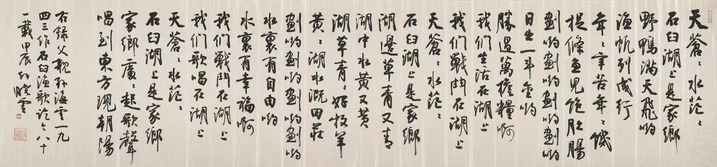 天蒼〻水茫〻
石臼湖上是家鄉
野鴨滿天飛喲
漁帆列成行
年〻辛苦年〻饑
提條魚兒飽肚腸
劃喲劃喲劃喲劃喲
日出一斗金喲
勝過萬擔糧啊
我們生活在湖上
我們戰鬥在湖上
天蒼〻水茫〻
石臼湖上是家鄉
湖邊草青又青
湖中水黄又黄
湖草青〻好牧羊
黄〻湖水溉田莊
劃喲劃喲劃喲劃喲
水裏有自由喲
水裏有幸福啊
我們戰鬥在湖上
我們歌唱在湖上
天蒼〻水茫〻
石臼湖上是家鄉
家鄉處〻起歌聲
唱到東方現朝陽
右錄父親孫海雲一九
四三作石臼漁歌八十
一載甲辰曉雲